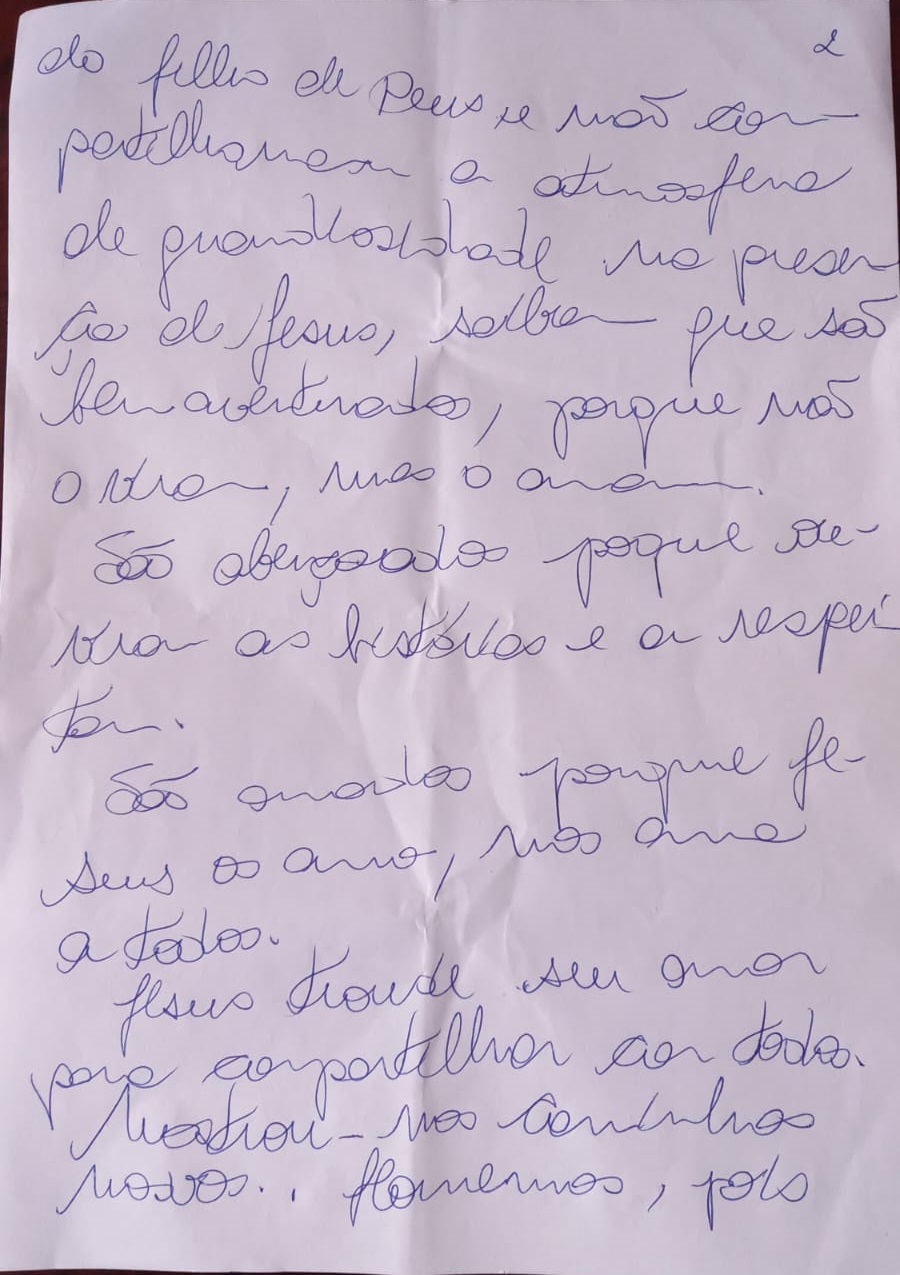 2
do filho de Deus, e não com-
partilharam a atmosfera
de grandiosidade na presen
ça de Jesus, saibam que são
bem aventurados, porque não
o viram, mas o amam.
São abençoados poque ou-
viram as histórias e a respei
tam.
São amados porque Je-
sus os amo, nos ama
a todos.
Jesus trouxe seu amor
para compartilhar com todos.
Mostrou-nos caminhos
novos.. Honremos, pois